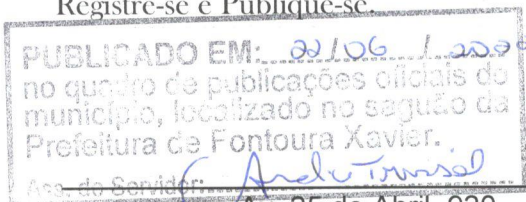 Registre-se e Publique-se.
PUBLICADO EM: 22/06 /
no quadro de publicações oficiais do
município, localizado no saguão da
Prefeitura de Fontoura Xavier.
Ass. do Servidor:
Av. 25 de Abril, 920